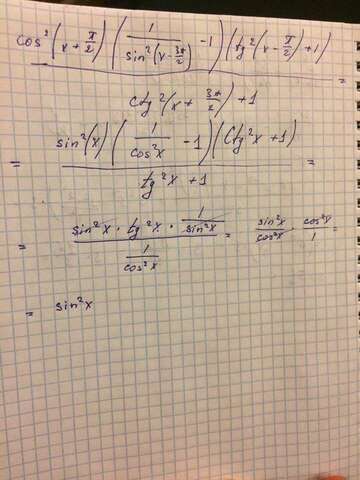 cos²(x + π/2) (1/sin²(x - 3π/2) - 1) (tg²(x - π/2) + 1)
=
ctg²(x + 3π/2) + 1
= sin²(x) (1/cos²x - 1) (ctg²x + 1) =
tg²x + 1
= sin²x · tg²x · 1/sin²x = sin²x/cos²x · cos²x/1 =
1/cos²x
= sin²x